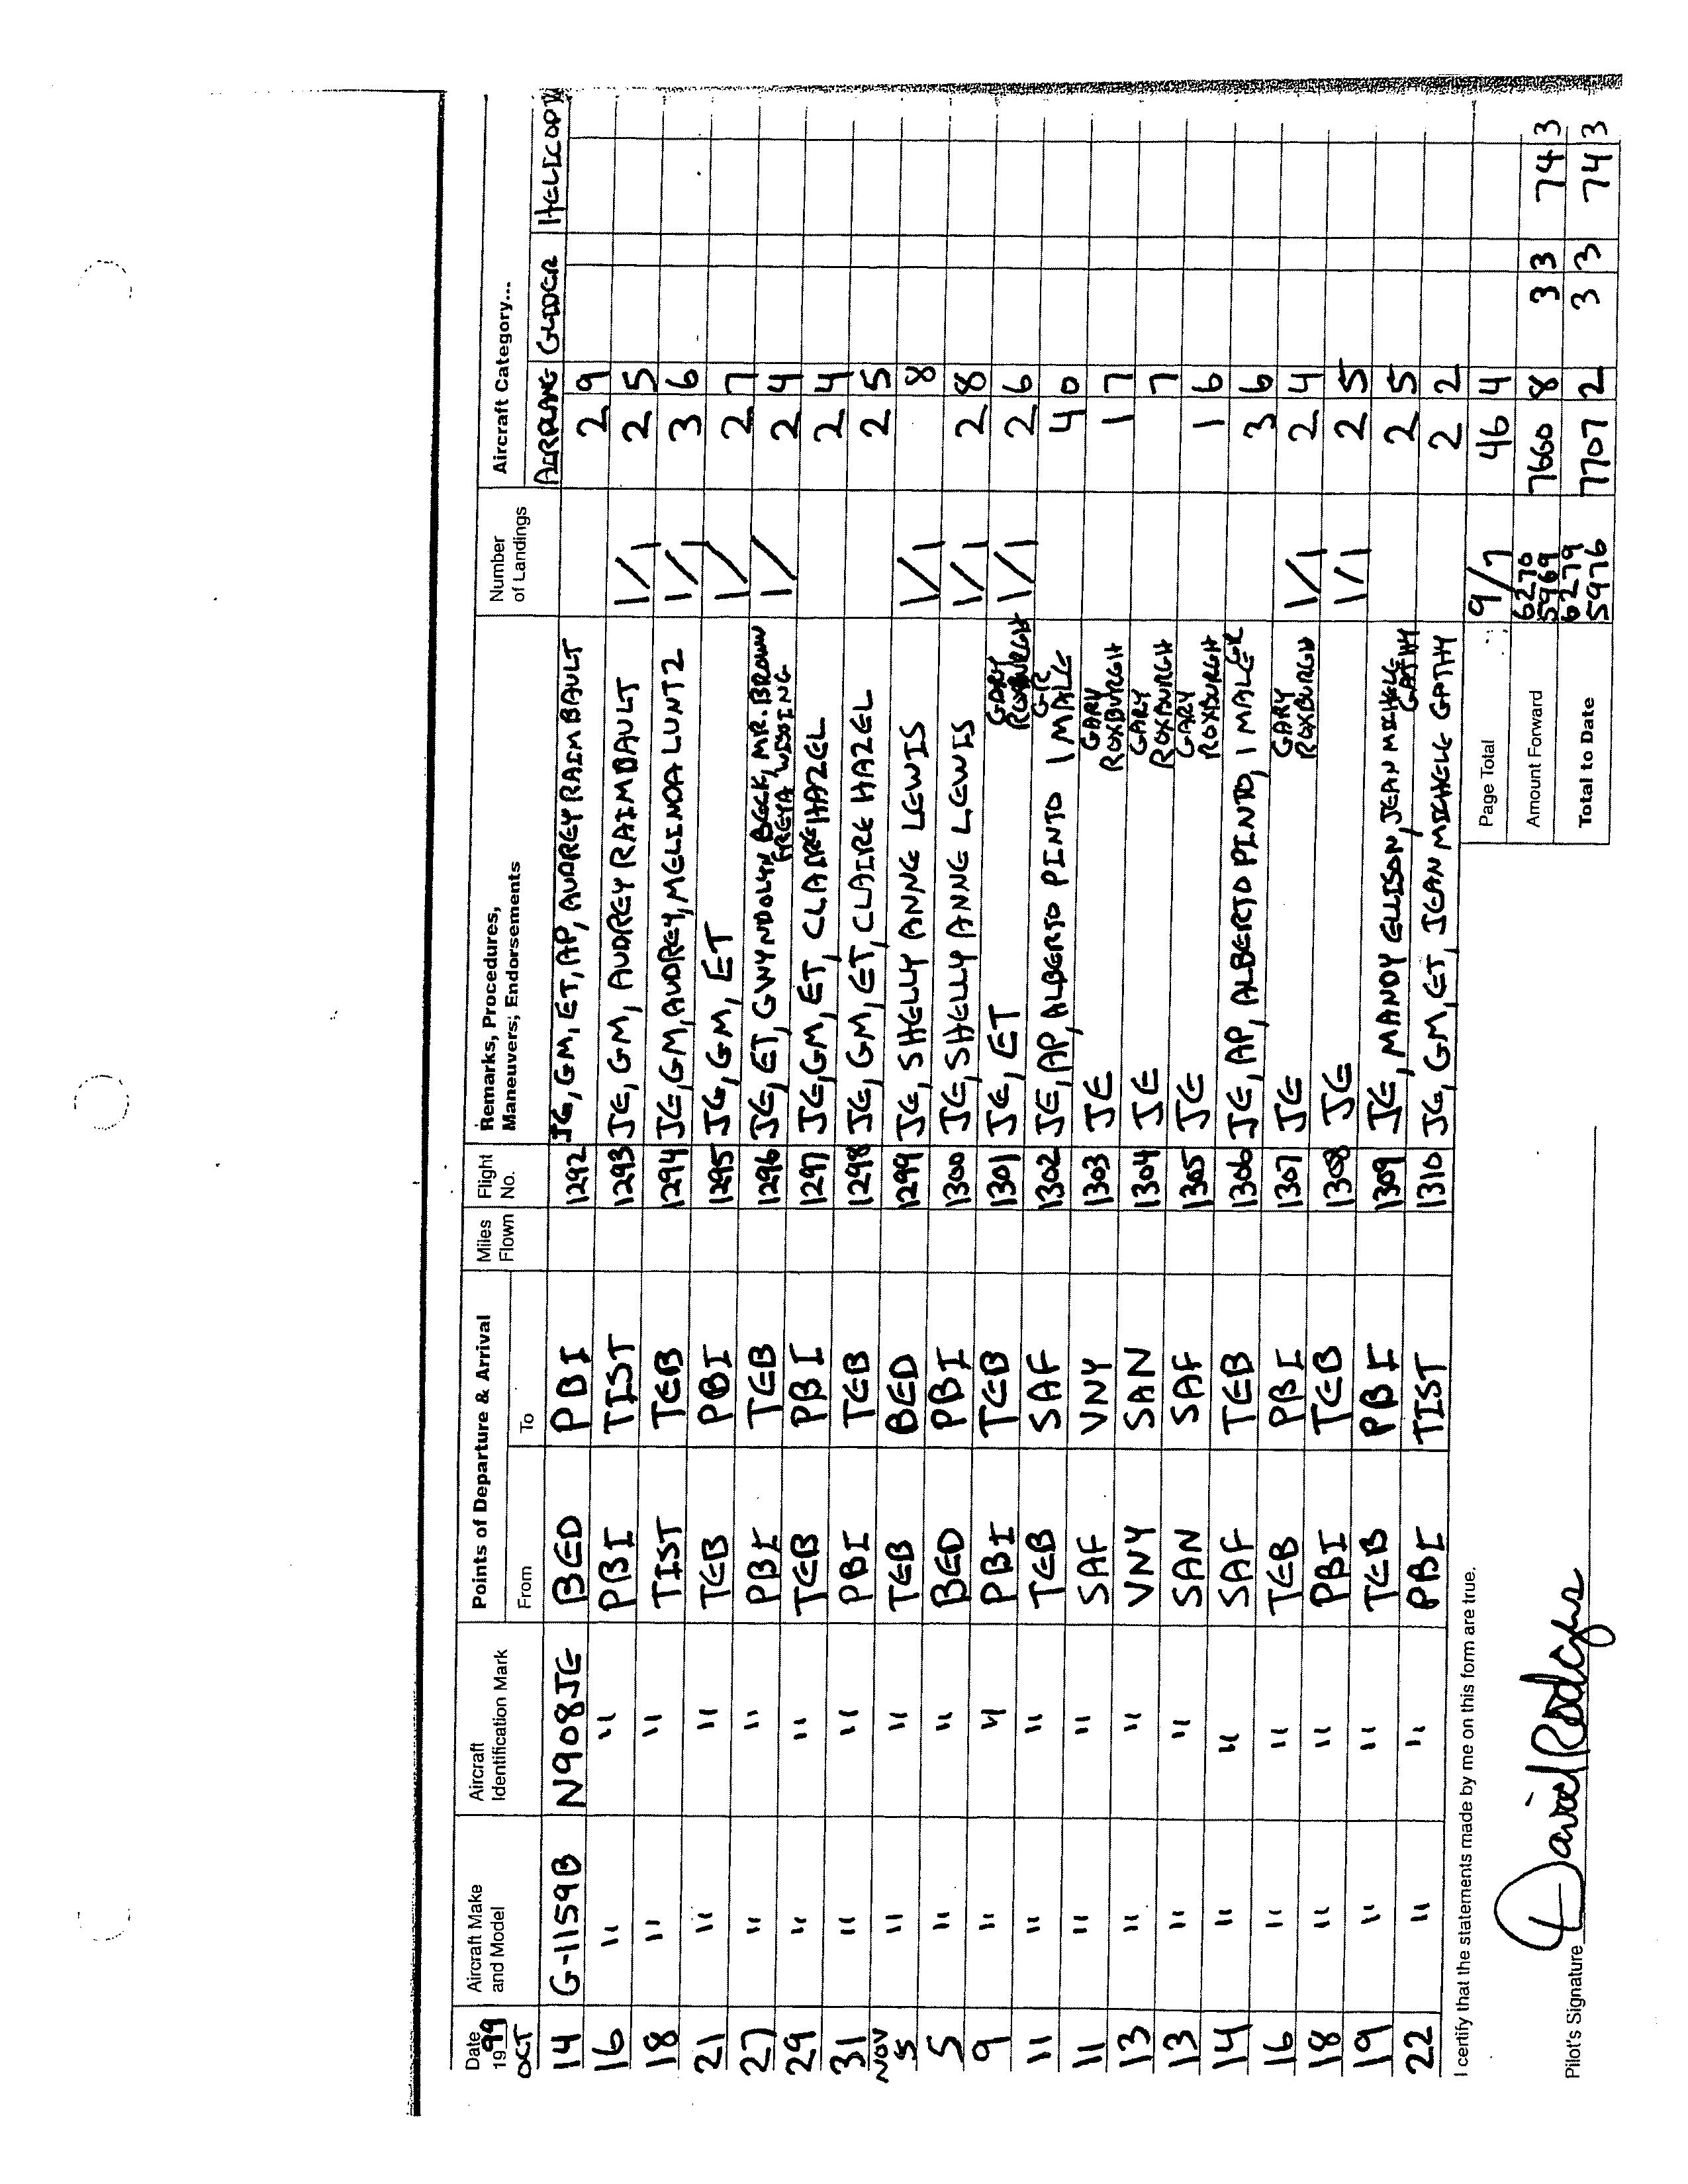 Date 1999 Aircraft Make and Model Aircraft Identification Mark Points of Departure & Arrival Miles Flown Flight No. Remarks, Procedures, Maneuvers; Endorsements Number of Landings Aircraft Category...
OCT From To AIRPLANE GLIDER HELICOPTR
14 G-1159B N908JE BED PBI 1292 JE, GM, ET, AP, AUDREY RAIMBAULT 2 9
16 " " PBI TIST 1293 JE, GM, AUDREY RAIMBAULT 1/1 2 5
18 " " TIST TEB 1294 JE, GM, AUDREY, MELINDA LUNTZ 1/1 3 6
21 " " TEB PBI 1295 JE, GM, ET 1/ 2 7
27 " " PBI TEB 1296 JE, ET, GWYNDOLYN BECK, MR. BROWN FREYA WISSING 1/ 2 4
29 " " TEB PBI 1297 JE, GM, ET, CLAIRE HAZEL 2 4
31 " " PBI TEB 1298 JE, GM, ET, CLAIRE HAZEL 2 5
NOV 5 " " TEB BED 1299 JE, SHELLY ANNE LEWIS 1/1 8
5 " " BED PBI 1300 JE, SHELLY ANNE LEWIS 1/1 2 8
9 " " PBI TEB 1301 JE, ET GARY ROXBURGH 1/1 2 6
11 " " TEB SAF 1302 JE, AP, ALBERTO PINTO 1 MALE GR 4 0
11 " " SAF VNY 1303 JE GARY ROXBURGH 1 7
13 " " VNY SAN 1304 JE GARY ROXBURGH 7
13 " " SAN SAF 1305 JE GARY ROXBURGH 1 6
14 " " SAF TEB 1306 JE, AP, ALBERTO PINTO, 1 MALE GR 3 6
16 " " TEB PBI 1307 JE GARY ROXBURGH 1/1 2 4
18 " " PBI TEB 1308 JE 1/1 2 5
19 " " TEB PBI 1309 JE, MANDY ELLISON, JEAN MICHELE GATHY 2 5
22 " " PBI TIST 1310 JE, GM, ET, JEAN MICHELE GATHY 2 2
I certify that the statements made by me on this form are true. Page Total 9/7 46 4
Amount Forward 6270 5969 7660 8 3 3 74 3
Pilot's Signature David Rodgers Total to Date 6279 5976 7707 2 3 3 74 3